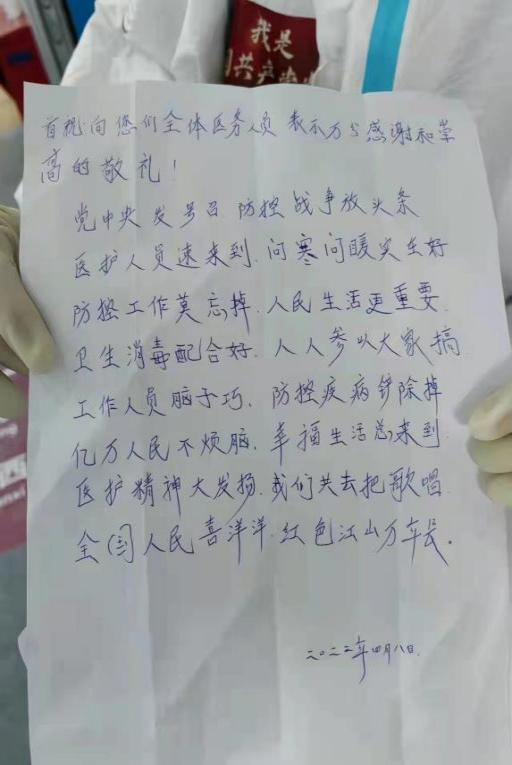 我是
国共产党
首批向您们全体医务人员 表示万分感谢和崇
高的敬礼！
党中央发号召 防控战争放头条
医护人员速来到.问寒问暖实在好
防控工作莫忘掉.人民生活更重要.
卫生消毒配合好.人人参以大家搞
工作人员脑子巧.防控疫病铲除掉
亿万人民不烦脑.幸福生活总来到.
医护精神大发扬.我们共去把歌唱.
全国人民喜洋洋.红色江山万年长。
二〇二二年四月八日.